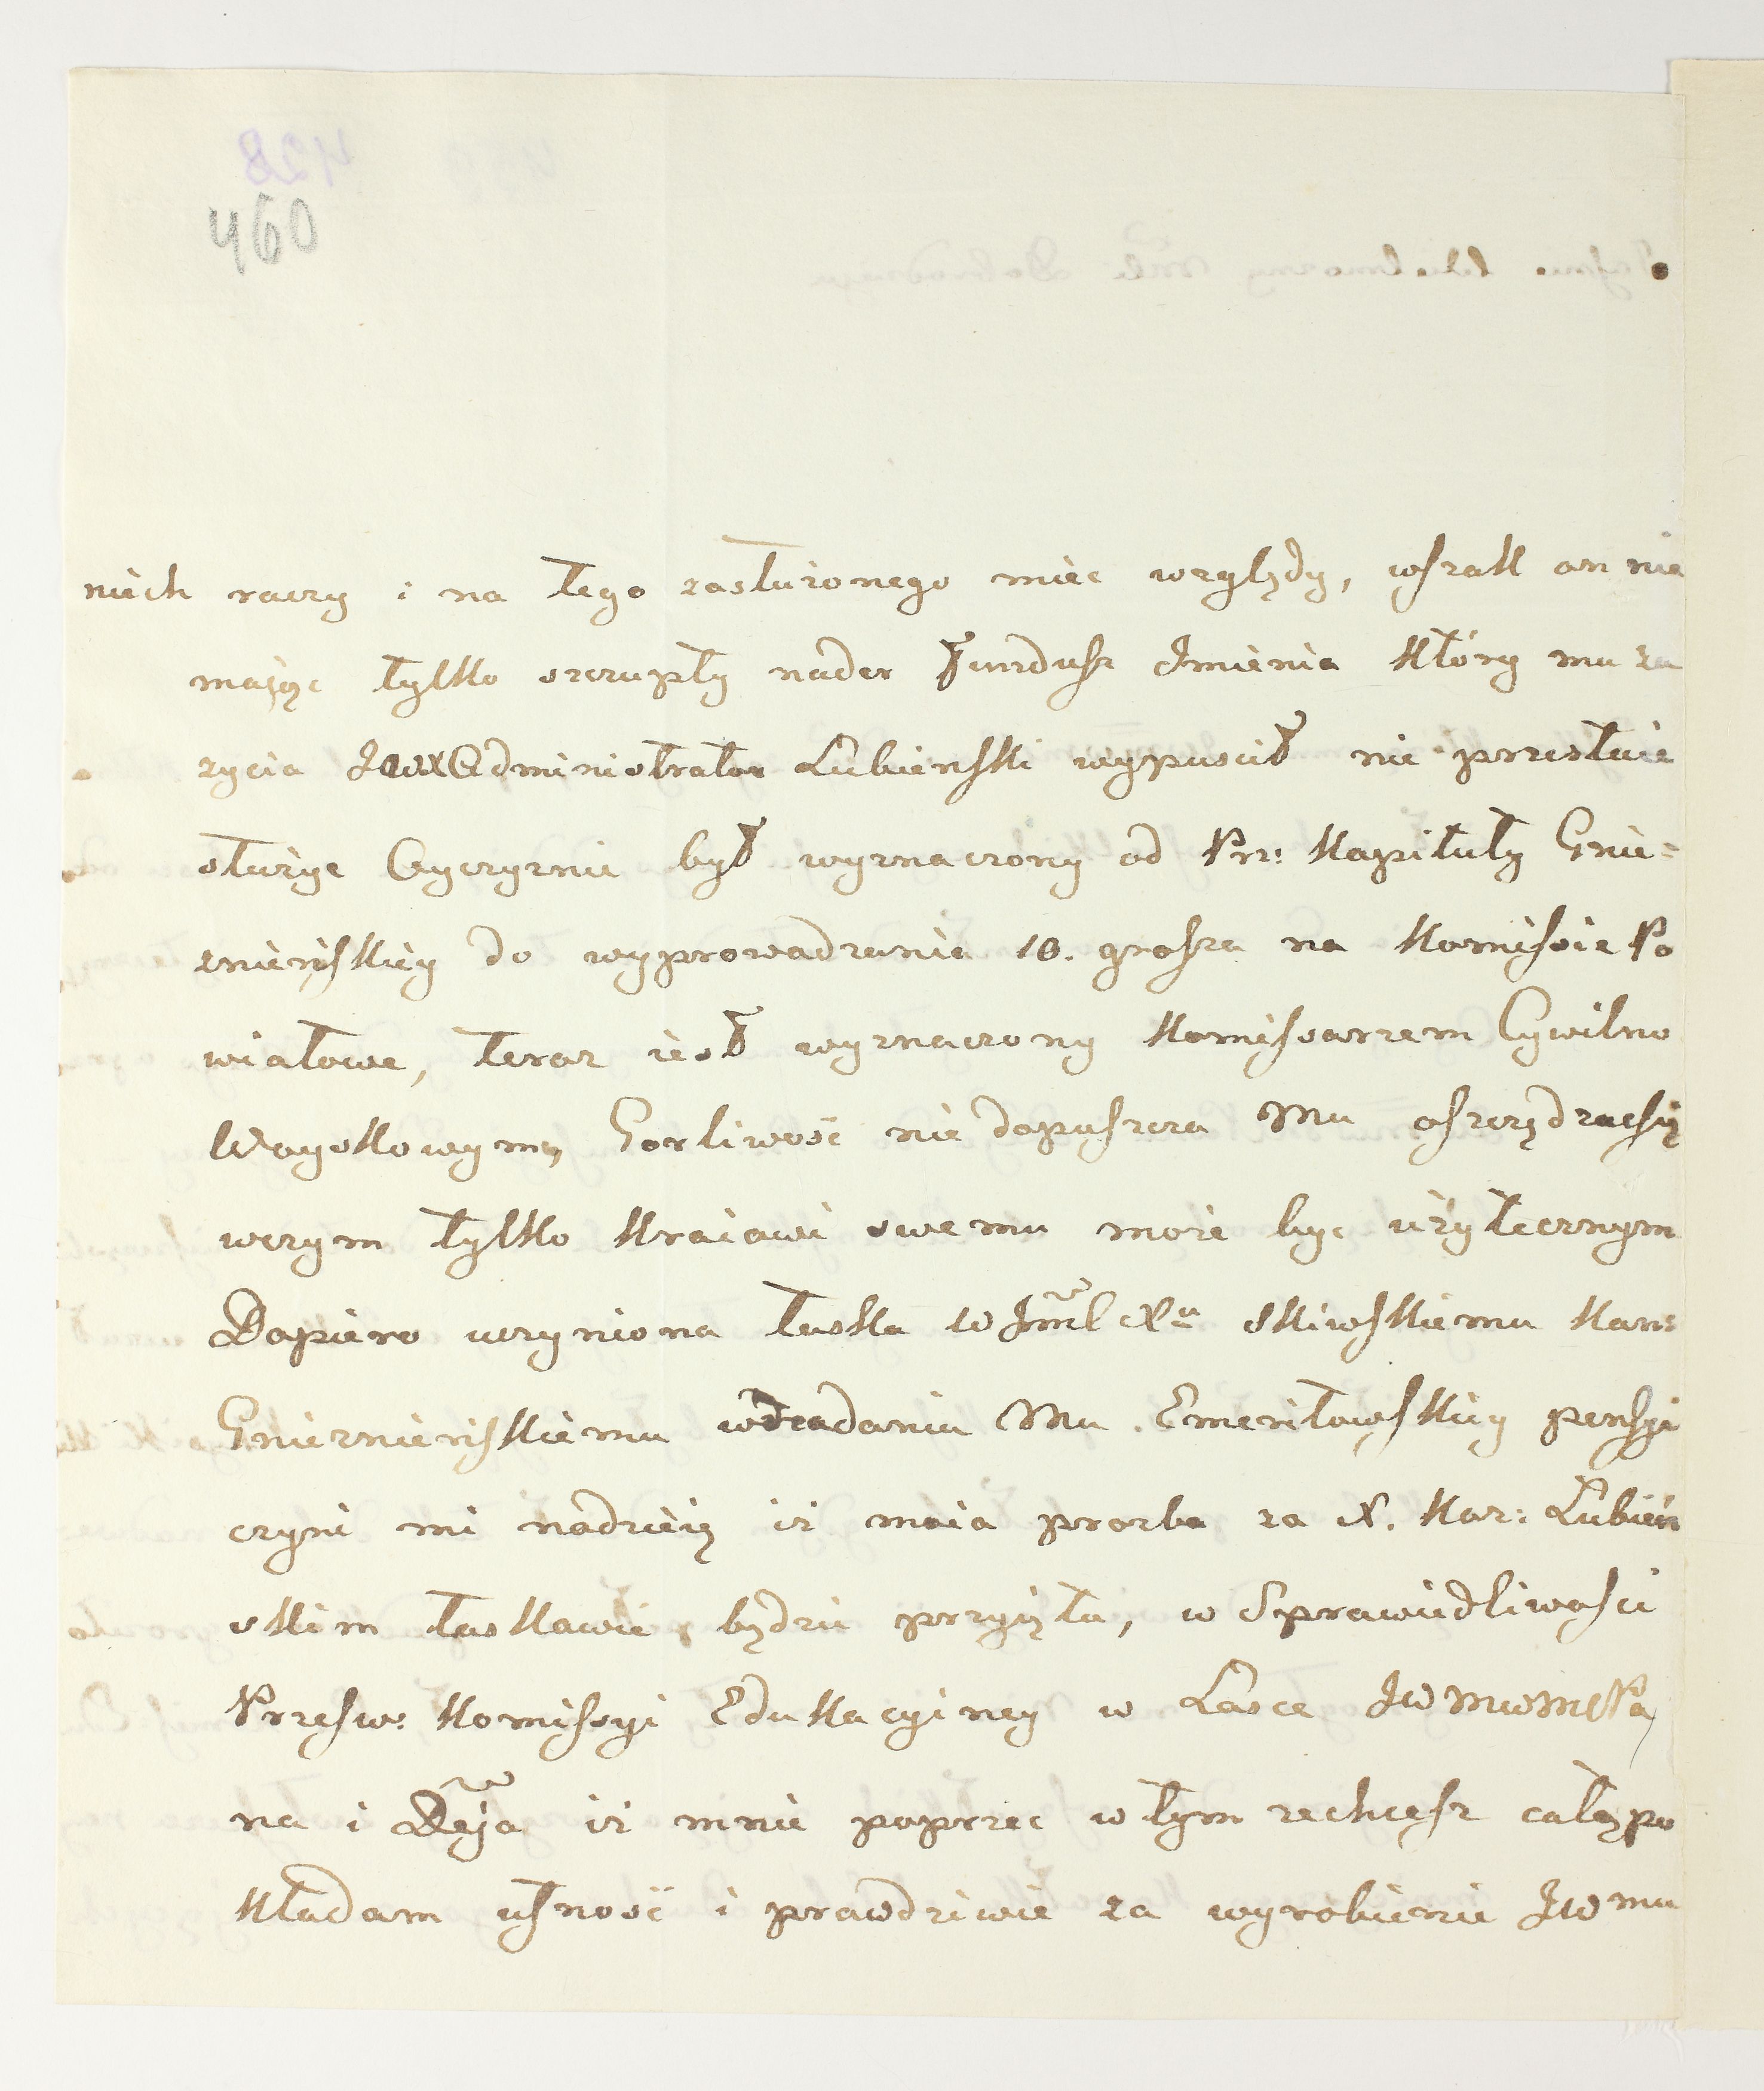 460
nich raczy i na tego zasłużonego mieć względy, wszak on nie
mając tylko szczupły nader Fundusz Imienia który mu za
zycia JWX Administrator Łubienski wypuscił nie przestaie
służyc Oyczyznie był wyznaczony od Prz: Kapituły Gnie=
znieńskiey do wyprowadzenia 10. grosza na Komissie Po
wiatowe, teraz iest wyznaczony Komissarzem Cywilno
Woyskowym, Gorliwość nie dopuszcza Mu oszczędzać się
wczym tylko Kraiowi swemu może byc użytecznym
Dopiero uczyniona łaska WJmći Xu Skiwskiemu Kan:
Gnieznieńskiemu Mu Emerytowskiey penssyi
czyni mi nadzieię iż moia prozba za X. Kar: Łubień
skim łaskawie będzie przyięta, w Sprawiedliwości
Przesw: Komissyi Edukacyiney w Łasce JW
na i Deja iż mnie poprzec w tym zechcesz całą po
kładam ufność i prawdziwie za wyrobienie JWmu